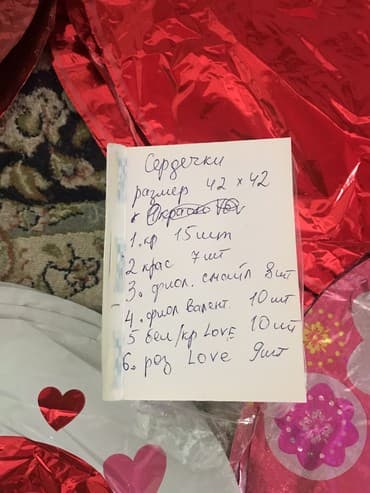 Сердечки
размер 42 × 42
1. кр 15шт
2 крас 7шт
3. фиол. смайл 8шт
4. фиол Валент. 10шт
5 бел/кр LOVE 10шт
6. роз Love 9шт